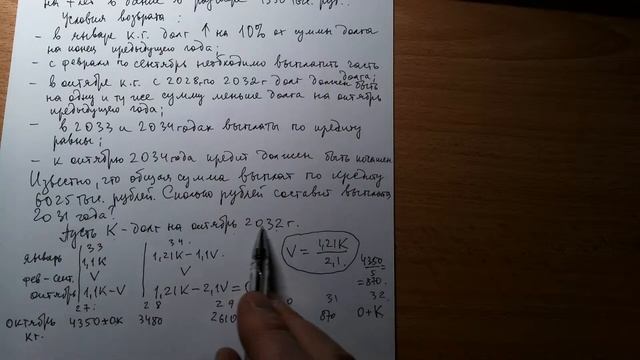 на 7 лет в банке в размере 4350 тыс. руб.
Условия возврата :
- в январе к.г. долг ↑ на 10% от суммы долга
на конец предыдущего года;
- с февраля по сентябрь необходимо выплатить часть
долга;
- в октябре к.г. с 2028 по 2032 г долг должен быть
на одну и ту же сумму меньше долга на октябрь
предыдущего года;
- в 2033 и 2034 годах выплаты по кредиту
равны;
- к октябрю 2034 года кредит должен быть погашен
Известно, что общая сумма выплат по кредиту
6025 тыс. рублей. Сколько рублей составит выплата
2031 года?
Пусть К - долг на октябрь 2032 г.
33 34
январь 1,1К 1,21К - 1,1V
фев-сент. V V
октябрь 1,1К-V 1,21К-2,1V=0
V = 1,21К / 2,1
4350 / 5 =
= 870.
27: 28 29 31 32
октябрь к.г. 4350+0К 3480 2610 870 0+К